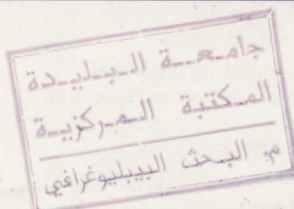 جامعة البليدة
المكتبة المركزية
م. البحث البيبليوغرافي